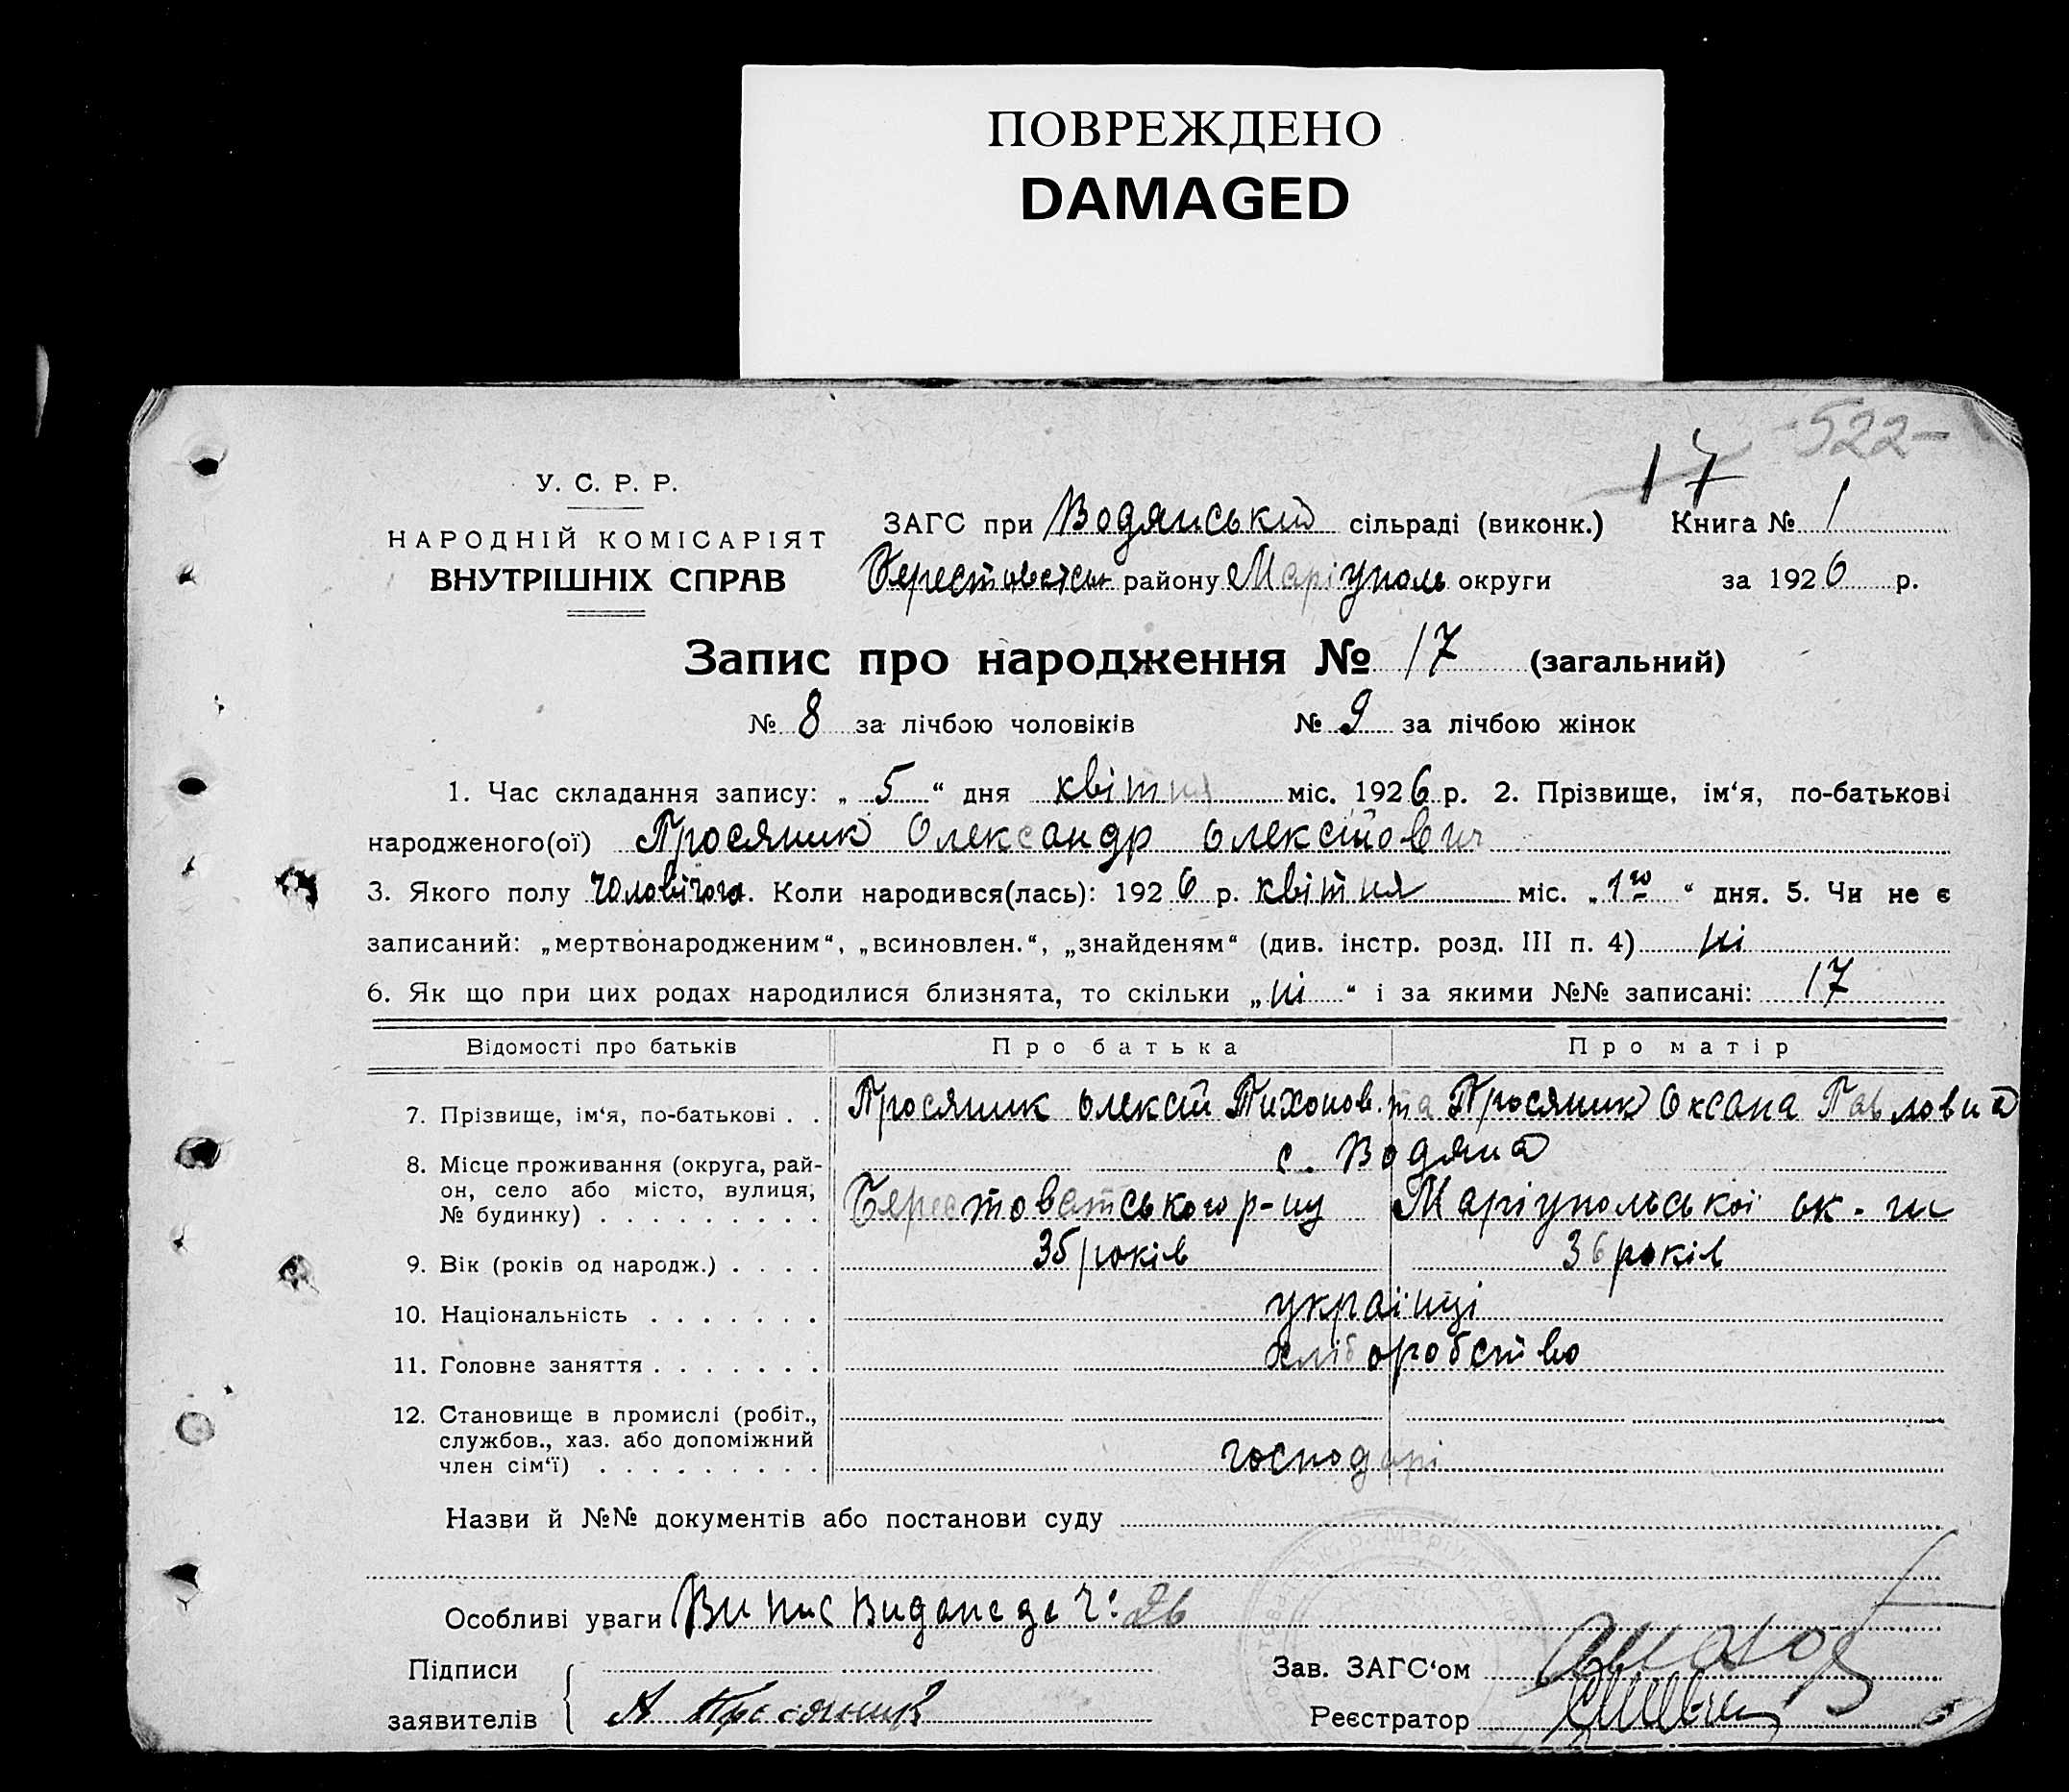 ПОВРЕЖДЕНО
DAMAGED
-522-
17
У. С. Р. Р.
НАРОДНІЙ КОМІСАРІЯТ
ВНУТРІШНІХ СПРАВ
ЗАГС при Водянській сільраді (виконк.) Книга № 1
району Маріуполь округи за 1926 р.
Запис про народження № 17 (загальний)
№ 8 за лічбою чоловіків № 9 за лічбою жінок
1. Час складання запису: „5“ дня квітня міс. 1926 р. 2. Прізвище, ім‘я, по-батькові
народженого(ої) Просяник Олександр Олексійович
3. Якого полу чоловічого. Коли народився(лась): 1926 р. квітня міс. „1го“ дня. 5. Чи не є
записаний: „мертвонародженим“, „всиновлен.“, „знайденям“ (див. інстр. розд. III п. 4) ні
6. Як що при цих родах народилися близнята, то скільки „ні“ і за якими №№ записані: 17
Відомості про батьків Про батька Про матір
7. Прізвище, ім‘я, по-батькові . . Просяник Олексій Тихонов. та Просяник Оксана Павловна
8. Місце проживання (округа, рай- с. Водяна
он, село або місто, вулиця, Берестоватського р-ну Маріупольської ок-ги
№ будинку) . . . . . . . . .
9. Вік (років од народж.) . . . . 35 років 36 років
10. Національність . . . . . . . українці
11. Головне заняття . . . . . . . хліборобство
12. Становище в промислі (робіт.,
службов., хаз. або допоміжний
член сім‘ї) . . . . . . . . . господарі
Назви й №№ документів або постанови суду
Особливі уваги Випис видане за ч: 26
Підписи Зав. ЗАГС‘ом
заявителів А Просяник Реєстратор